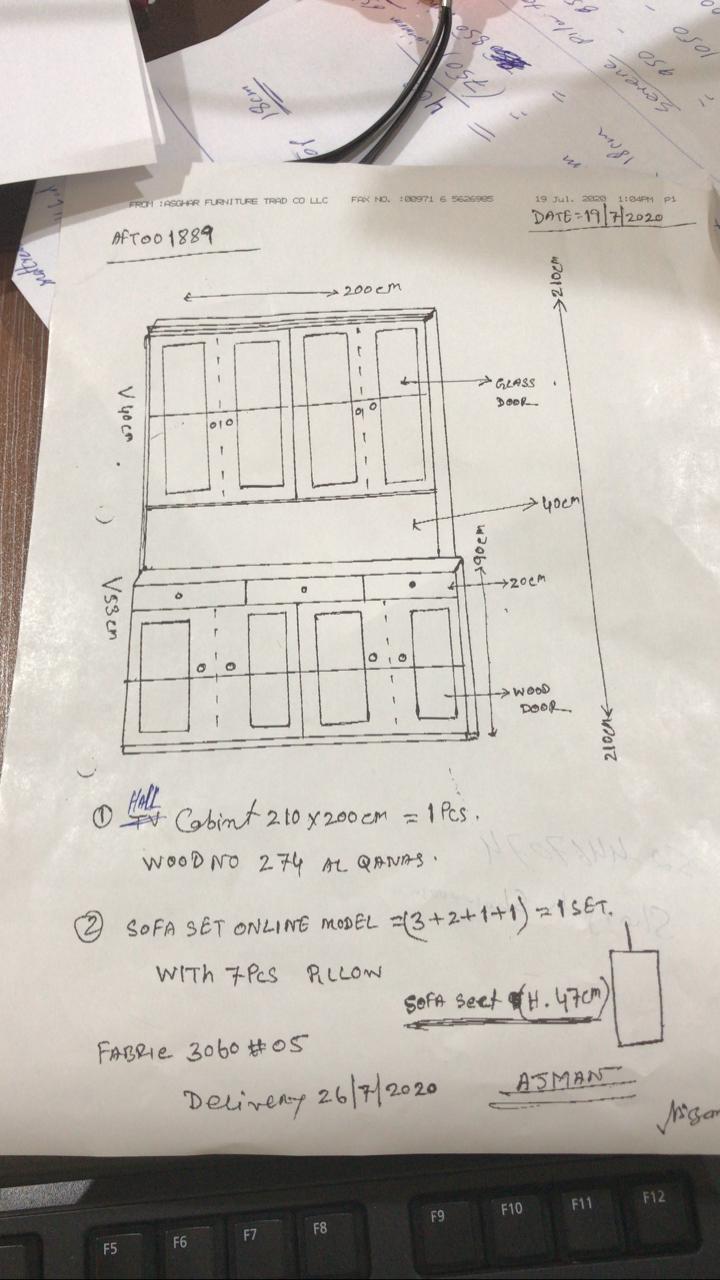 18cm
FROM :ASGHAR FURNITURE TRAD CO LLC FAX NO. :00971 6 5626985 19 Jul. 2020 1:04PM P1
DATE=19/7/2020
AFT001889
200cm
210cm
GLASS
DOOR
V 40cm
40cm
90cm
20cm
V53cm
WOOD
DOOR
210cm
① HALL Cabint 210 X 200cm = 1 Pcs.
WOOD NO 274 AL QANAS.
② SOFA SET ONLINE MODEL =(3+2+1+1) = 1 SET.
WITH 7 PCS PILLOW
SOFA Seet (H. 47cm)
FABRIE 3060 # 05
Delivery 26/7/2020 AJMAN
F5 F6 F7 F8 F9 F10 F11 F12